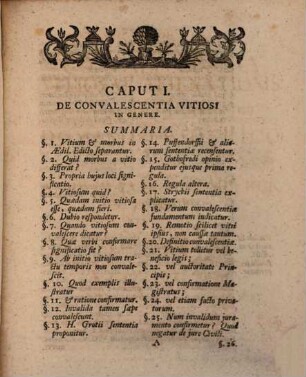 CAPUT I.
DE CONVALESCENTIA VITIOSI
IN GENERE.
SUMMARIA.
§. 1. Vitium & morbus in
Ædil. Edicto separantur.
§. 2. Quid morbus a vitio
differat?
§. 3. Propria hujus loci signi-
ficatio.
§. 4. Vitiosum quid?
§. 5. Quædam initio vitiosa
esse, quædam fieri.
§. 6. Dubio respondetur.
§. 7. Quando vitiosum con-
valescere dicatur?
§. 8. Quæ verbi confirmare
significatio sit?
§. 9. Ab initio vitiosum tra-
ctu temporis non convale-
scit.
§. 10. Quod exemplis illu-
stratur
§. 11. & ratione confirmatur.
§. 12. Invalida tamen sæpe
convalescunt.
§. 13. H. Grotii sententia
proponitur.
§. 14. Puffendorffii & alio-
rum sententiæ recensentur.
§. 15. Gothofredi opinio ex-
penditur ejusque prima re-
gula.
§. 16. Regula altera.
§. 17. Strychii sententia ex-
plicatur.
§. 18. Verum convalescentiæ
fundamentum indicatur.
§. 19. Remotio scilicet vitii
ipsius, non caussæ tantum.
§. 20. Definitio convalescentiæ.
§. 21. Vitium tollitur vel
beneficio legis;
§. 22. vel auctoritate Prin-
cipis;
§. 23. vel confirmatione Ma-
gistratus;
§. 24. vel etiam facto priva-
torum.
§. 25. Num invalidum jura-
mento confirmetur? Quod
negatur de jure Civili.
A
§. 26.